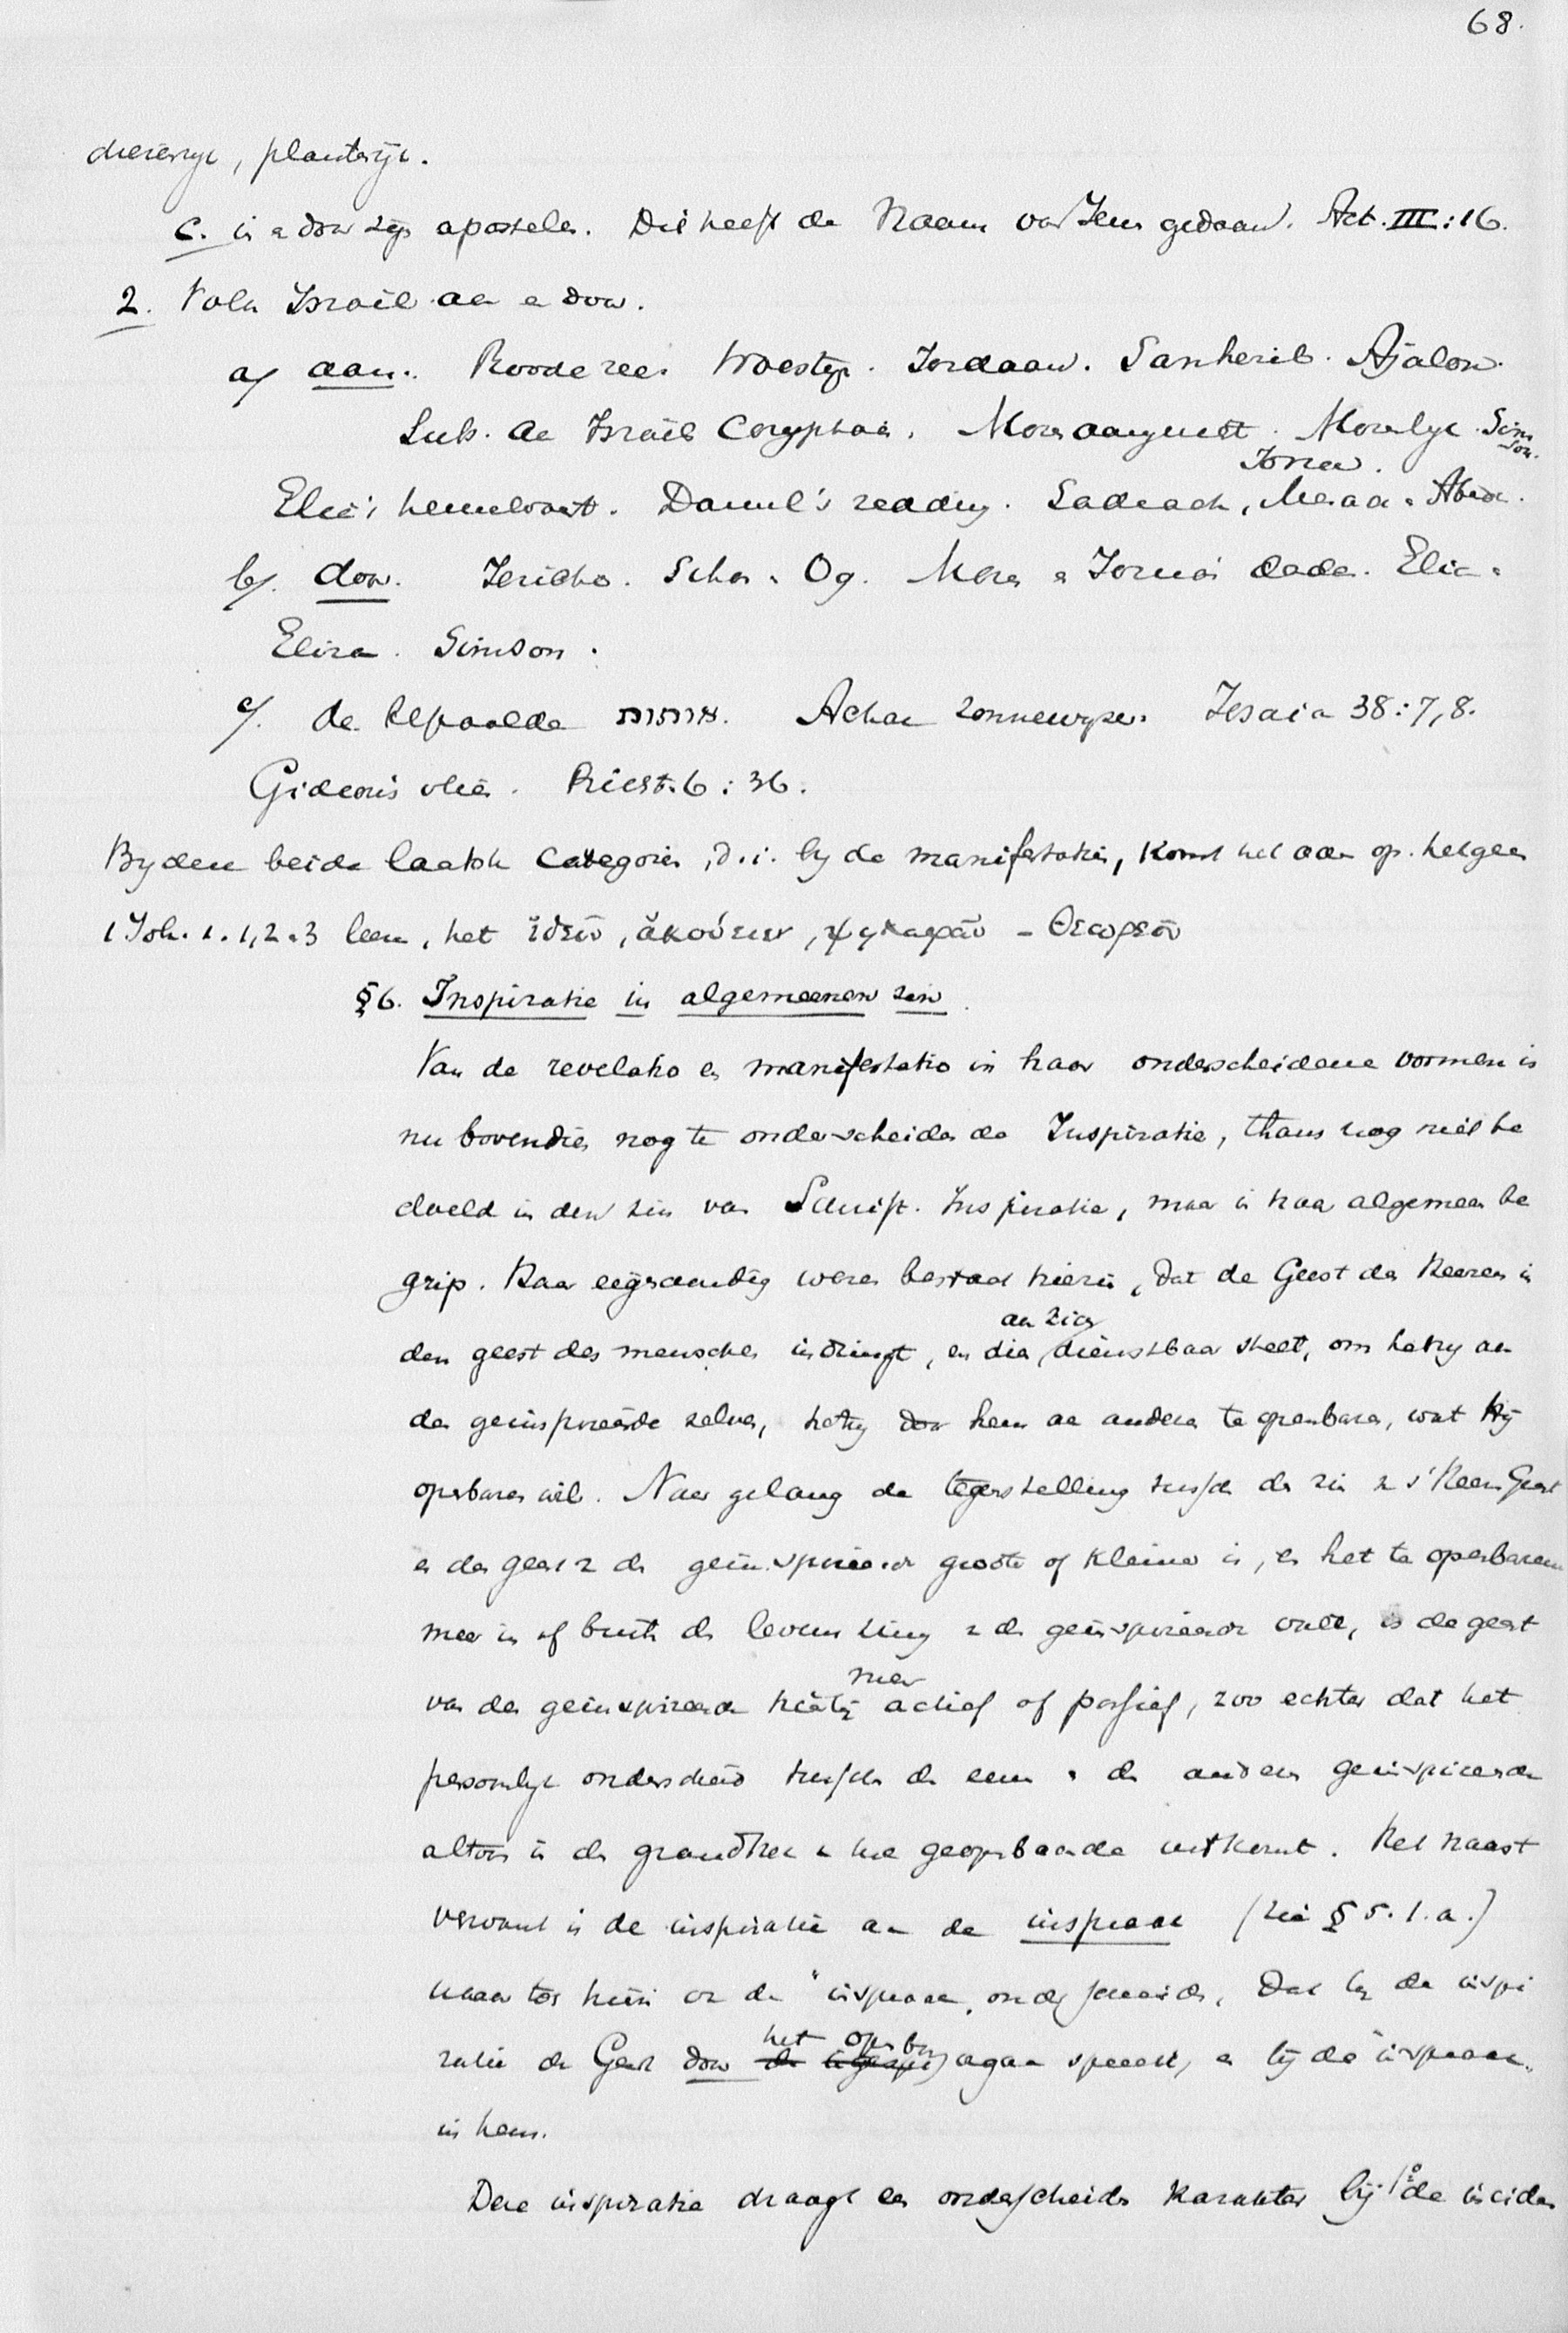 68.
dierenrijk, plantenrijk.
c. in en door zijn apostelen. Dit heeft de Naam van Jezus gedaan. Act. III:16.
2. Volk Israël aan en door.
a/ aan. Roode zee. Woestijn. Jordaan. Sanherib. Ajalon.
Sub. de Israëls Coryphaeën. Mozes aangezicht. Mozes lijk. Simson.
Jona.
Elia's hemelvaart. Daniel's redding. Sadrach, Mesach en Abed.
b/. door. Jericho. Sihon en Og. Mozes en Jozua's daden. Elia en
Eliza. Simson.
c/. de bepaalde אותות. Achaz zonnewijzer. Jesaia 38:7,8.
Gideons vlies. Richt. 6:36.
By deze beide laatste Categoriën, d.i. by de manifestatie, komt het aan op hetgeen
1 Joh. 1. 1, 2 en 3 lezen, het ἰδεῖν, ἀκούειν, ψηλαφᾶν – θεωρεῖν
§6. Inspiratie in algemeenen zin.
Van de revelatio en manifestatio in haar onderscheidene vormen is
nu bovendien nog te onderscheiden de Inspiratie, thans nog niet be
doeld in den zin van Schrift-Inspiratie, maar in haar algemeen be
grip. Haar eigenaardig wezen bestaat hierin, dat de Geest des Heeren in
den geest des menschen indringt, en dien
aan zich
dienstbaar stelt, om hetzij aan
den geïnspireerde zelven, hetzij door hem aan anderen te openbaren, wat Hij
openbaren wil. Naar gelang de tegenstelling tusschen den zin v. 's Heeren Geest
en den geest v. den geïnspireerde grooter of kleiner is, en het te openbaren
meer in of buiten den levenskring v. den geïnspireerde valt, is de geest
van den geïnspireerde hierbij
meer
actief of passief, zoo echter dat het
persoonlijk onderscheid tusschen den eenen en den anderen geïnspireerde
altoos in de het geopenbaarde uitkomt. Het naast
verwant is de inspiratie aan de inspraak (zie § 5. 1. a.)
maar toch hierin van de inspraak onderscheiden, dat bij de inspi
ratie de Geest door
het
orgaan spreekt, en bij de inspraak
in hem.
Deze inspiratie draagt een onderscheiden karakter bij 1° de